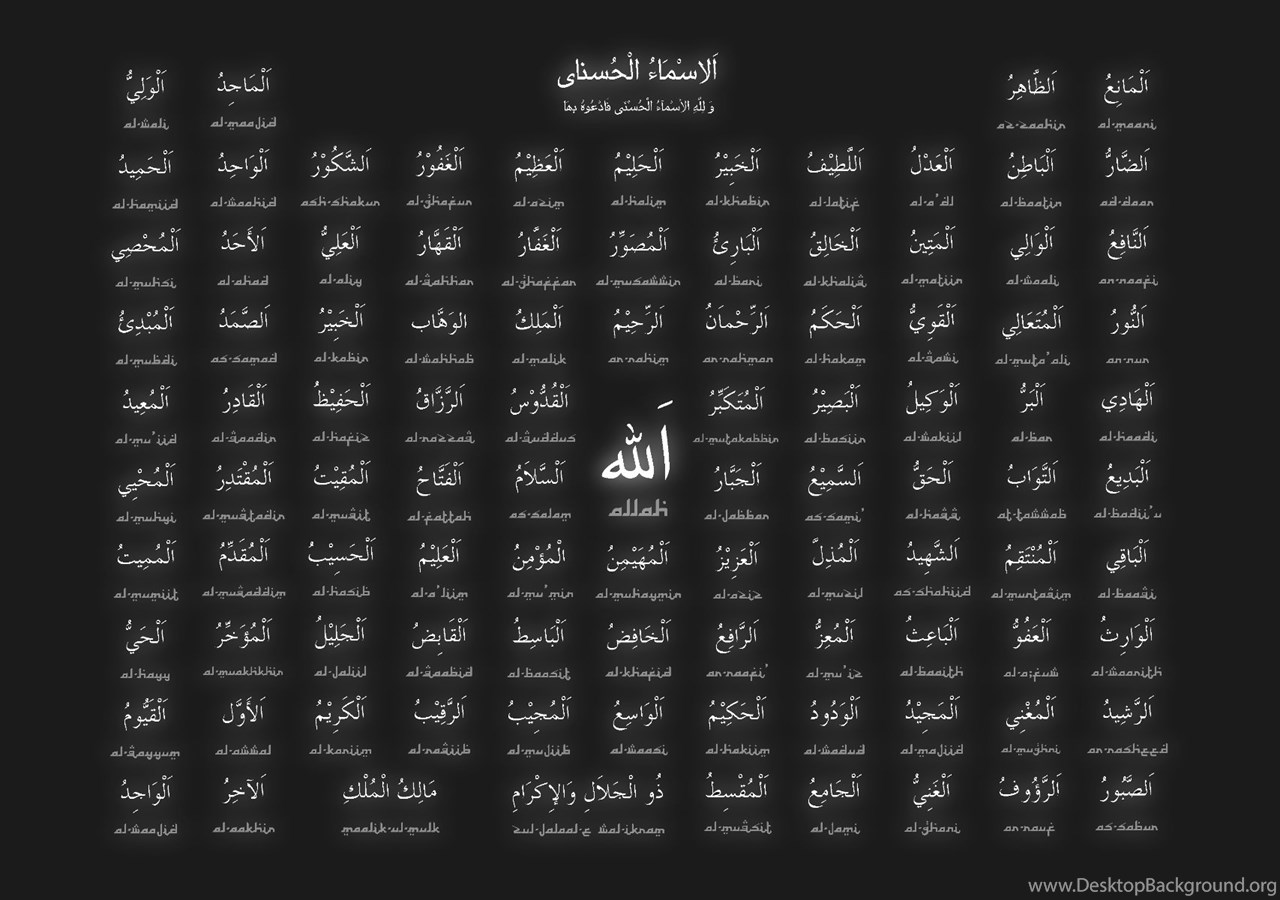 اَلاِسْمَاءُ الْحُسنای
وَ لِلّٰهِ الاَسْمَاءُ الْحُسْنٰى فَادْعُوهُ بِهَا
اَلْمَانِعُ اَلظَّاهِرُ اَلْمَاجِدُ اَلْوَلِيُّ
al-wali al-maajid az-zaahir al-maani
اَلضَّارُّ اَلْبَاطِنُ اَلْعَدْلُ اَللَّطِيْفُ اَلْخَبِيْرُ اَلْحَلِيْمُ اَلْعَظِيْمُ اَلْغَفُوْرُ اَلشَّكُوْرُ اَلْوَاحِدُ اَلْحَمِيدُ
al-hamiid al-waahid ash-shakur al-ghafur al-azim al-halim al-khabir al-latif al-a'dl al-baatin ad-daar
اَلنَّافِعُ اَلْوَالِي اَلْمَتِينُ اَلْخَالِقُ اَلْبَارِئُ اَلْمُصَوِّرُ اَلْغَفَّارُ اَلْقَهَّارُ اَلْعَلِيُّ اَلأَحَدُ اَلْمُحْصِي
al-muhsi al-ahad al-aliy al-qahhar al-ghaffar al-musawwir al-bari al-khaliq al-matiin al-waali an-naafi
اَلنُّورُ اَلْمُتَعَالِي اَلْقَوِيُّ اَلْحَكَمُ اَلرَّحْمَانُ اَلرَّحِيْمُ اَلْمَلِكُ الوَهَّاب اَلْخَبِيْرُ اَلصَّمَدُ اَلْمُبْدِئُ
al-mubdi as-samad al-kabir al-wahhab al-malik ar-rahim ar-rahman al-hakam al-qawi al-muta'ali an-nur
اَلْهَادِي اَلْبَرُّ اَلْوَكِيلُ اَلْبَصِيْرُ اَلْمُتَكَبِّرُ اَلْقُدُّوْسُ اَلرَّزَّاقُ اَلْحَفِيْظُ اَلْقَادِرُ اَلْمُعِيدُ
al-mu'iid al-qaadir al-hafiz ar-razzaq al-quddus al-mutakabbir al-basiir al-wakiil al-bar al-haadi
اَلله
allah
اَلْبَدِيعُ اَلتَّوَابُ اَلْحَقُّ اَلسَّمِيْعُ اَلْجَبَّارُ اَلسَّلاَمُ اَلْفَتَّاحُ اَلْمُقِيْتُ اَلْمُقْتَدِرُ اَلْمُحْيِي
al-muhyi al-muqtadir al-muqit al-fattah as-salam al-jabbar as-sami' al-haqq at-tawwab al-badii'u
اَلْبَاقِي اَلْمُنْتَقِمُ اَلشَّهِيدُ اَلْمُذِلَّ اَلْعَزِيْزُ اَلْمُهَيْمِنُ اَلْمُؤْمِنُ اَلْعَلِيْمُ اَلْحَسِيْبُ اَلْمُقَدِّمُ اَلْمُمِيتُ
al-mumiit al-muqaddim al-hasib al-a'liim al-mu'min al-muhaymin al-aziz al-muzil as-shahiid al-muntaqim al-baaqi
اَلْوَارِثُ اَلْعَفُوُّ اَلْبَاعِثُ اَلْمُعِزُّ اَلرَّافِعُ اَلْخَافِضُ اَلْبَاسِطُ اَلْقَابِضُ اَلْجَلِيْلُ اَلْمُؤَخِّرُ اَلْحَيُّ
al-hayy al-muakhkhir al-jaliil al-qaabid al-baasit al-khafid ar-raafi' al-mu'iz al-baaith al-a;fuw al-waarith
اَلرَّشِيدُ اَلْمُغْنِي اَلْمَجِيْدُ اَلْوَدُودُ اَلْحَكِيْمُ اَلْوَاسِعُ اَلْمُجِيْبُ اَلرَّقِيْبُ اَلْكَرِيْمُ اَلأَوَّل اَلْقَيُّومُ
al-qayyum al-awwal al-kariim al-raqiib al-mujiib al-waasi al-hakiim al-wadud al-majiid al-mughni ar-rasheed
اَلصَّبُورُ اَلرَّؤُوفُ اَلْغَنِيُّ اَلْجَامِعُ اَلْمُقْسِطُ ذُو الْجَلَالِ وَالإِكْرَامِ مَالِكُ الْمُلْكِ اَلآخِرُ اَلْوَاجِدُ
al-waajid al-aakhir maalik-ul-mulk zul-jalaal-e wal-ikram al-muqsit al-jami al-ghani ar-rauf as-sabur
www.DesktopBackground.org